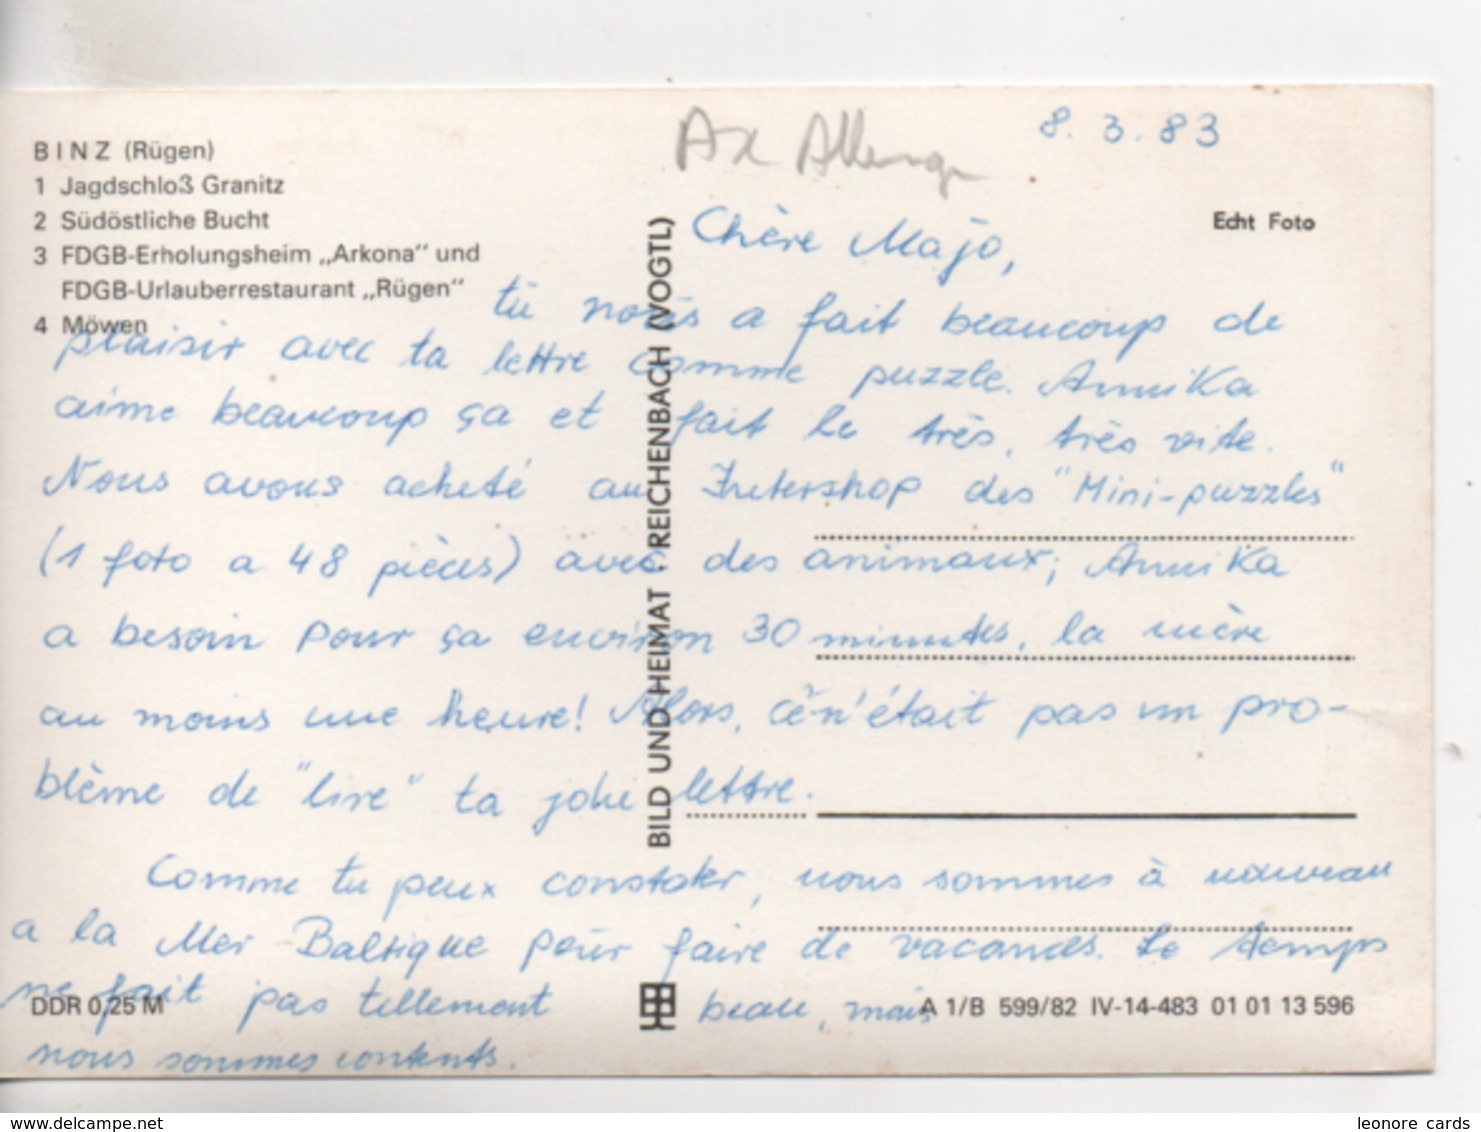 Ax Allemagn
8. 3. 83
BINZ (Rügen)
1 Jagdschloß Granitz
2 Südöstliche Bucht
3 FDGB-Erholungsheim „Arkona“ und
FDGB-Urlauberrestaurant „Rügen“
4 Möwen
Echt Foto
BILD UND HEIMAT · REICHENBACH (VOGTL)
Chère Majo,
tu nous a fait beaucoup de
plaisir avec ta lettre comme puzzle. Annika
aime beaucoup ça et fait le très, très vite.
Nous avous acheté au Intershop des "Mini-puzzles"
(1 foto a 48 pièces) avec des animaux; Annika
a besoin pour ça environ 30 minutes, la mère
au moins une heure! Alors, ce n'était pas un pro-
blème de "lire" ta jolie lettre.
Comme tu peux constater, nous sommes à nouveau
a la Mer Baltique pour faire de vacances. Le temps
ne fait pas tellement beau, mais
nous sommes contents.
DDR 0,25 M
A 1/B 599/82 IV-14-483 01 01 13 596
www.delcampe.net
leonore cards